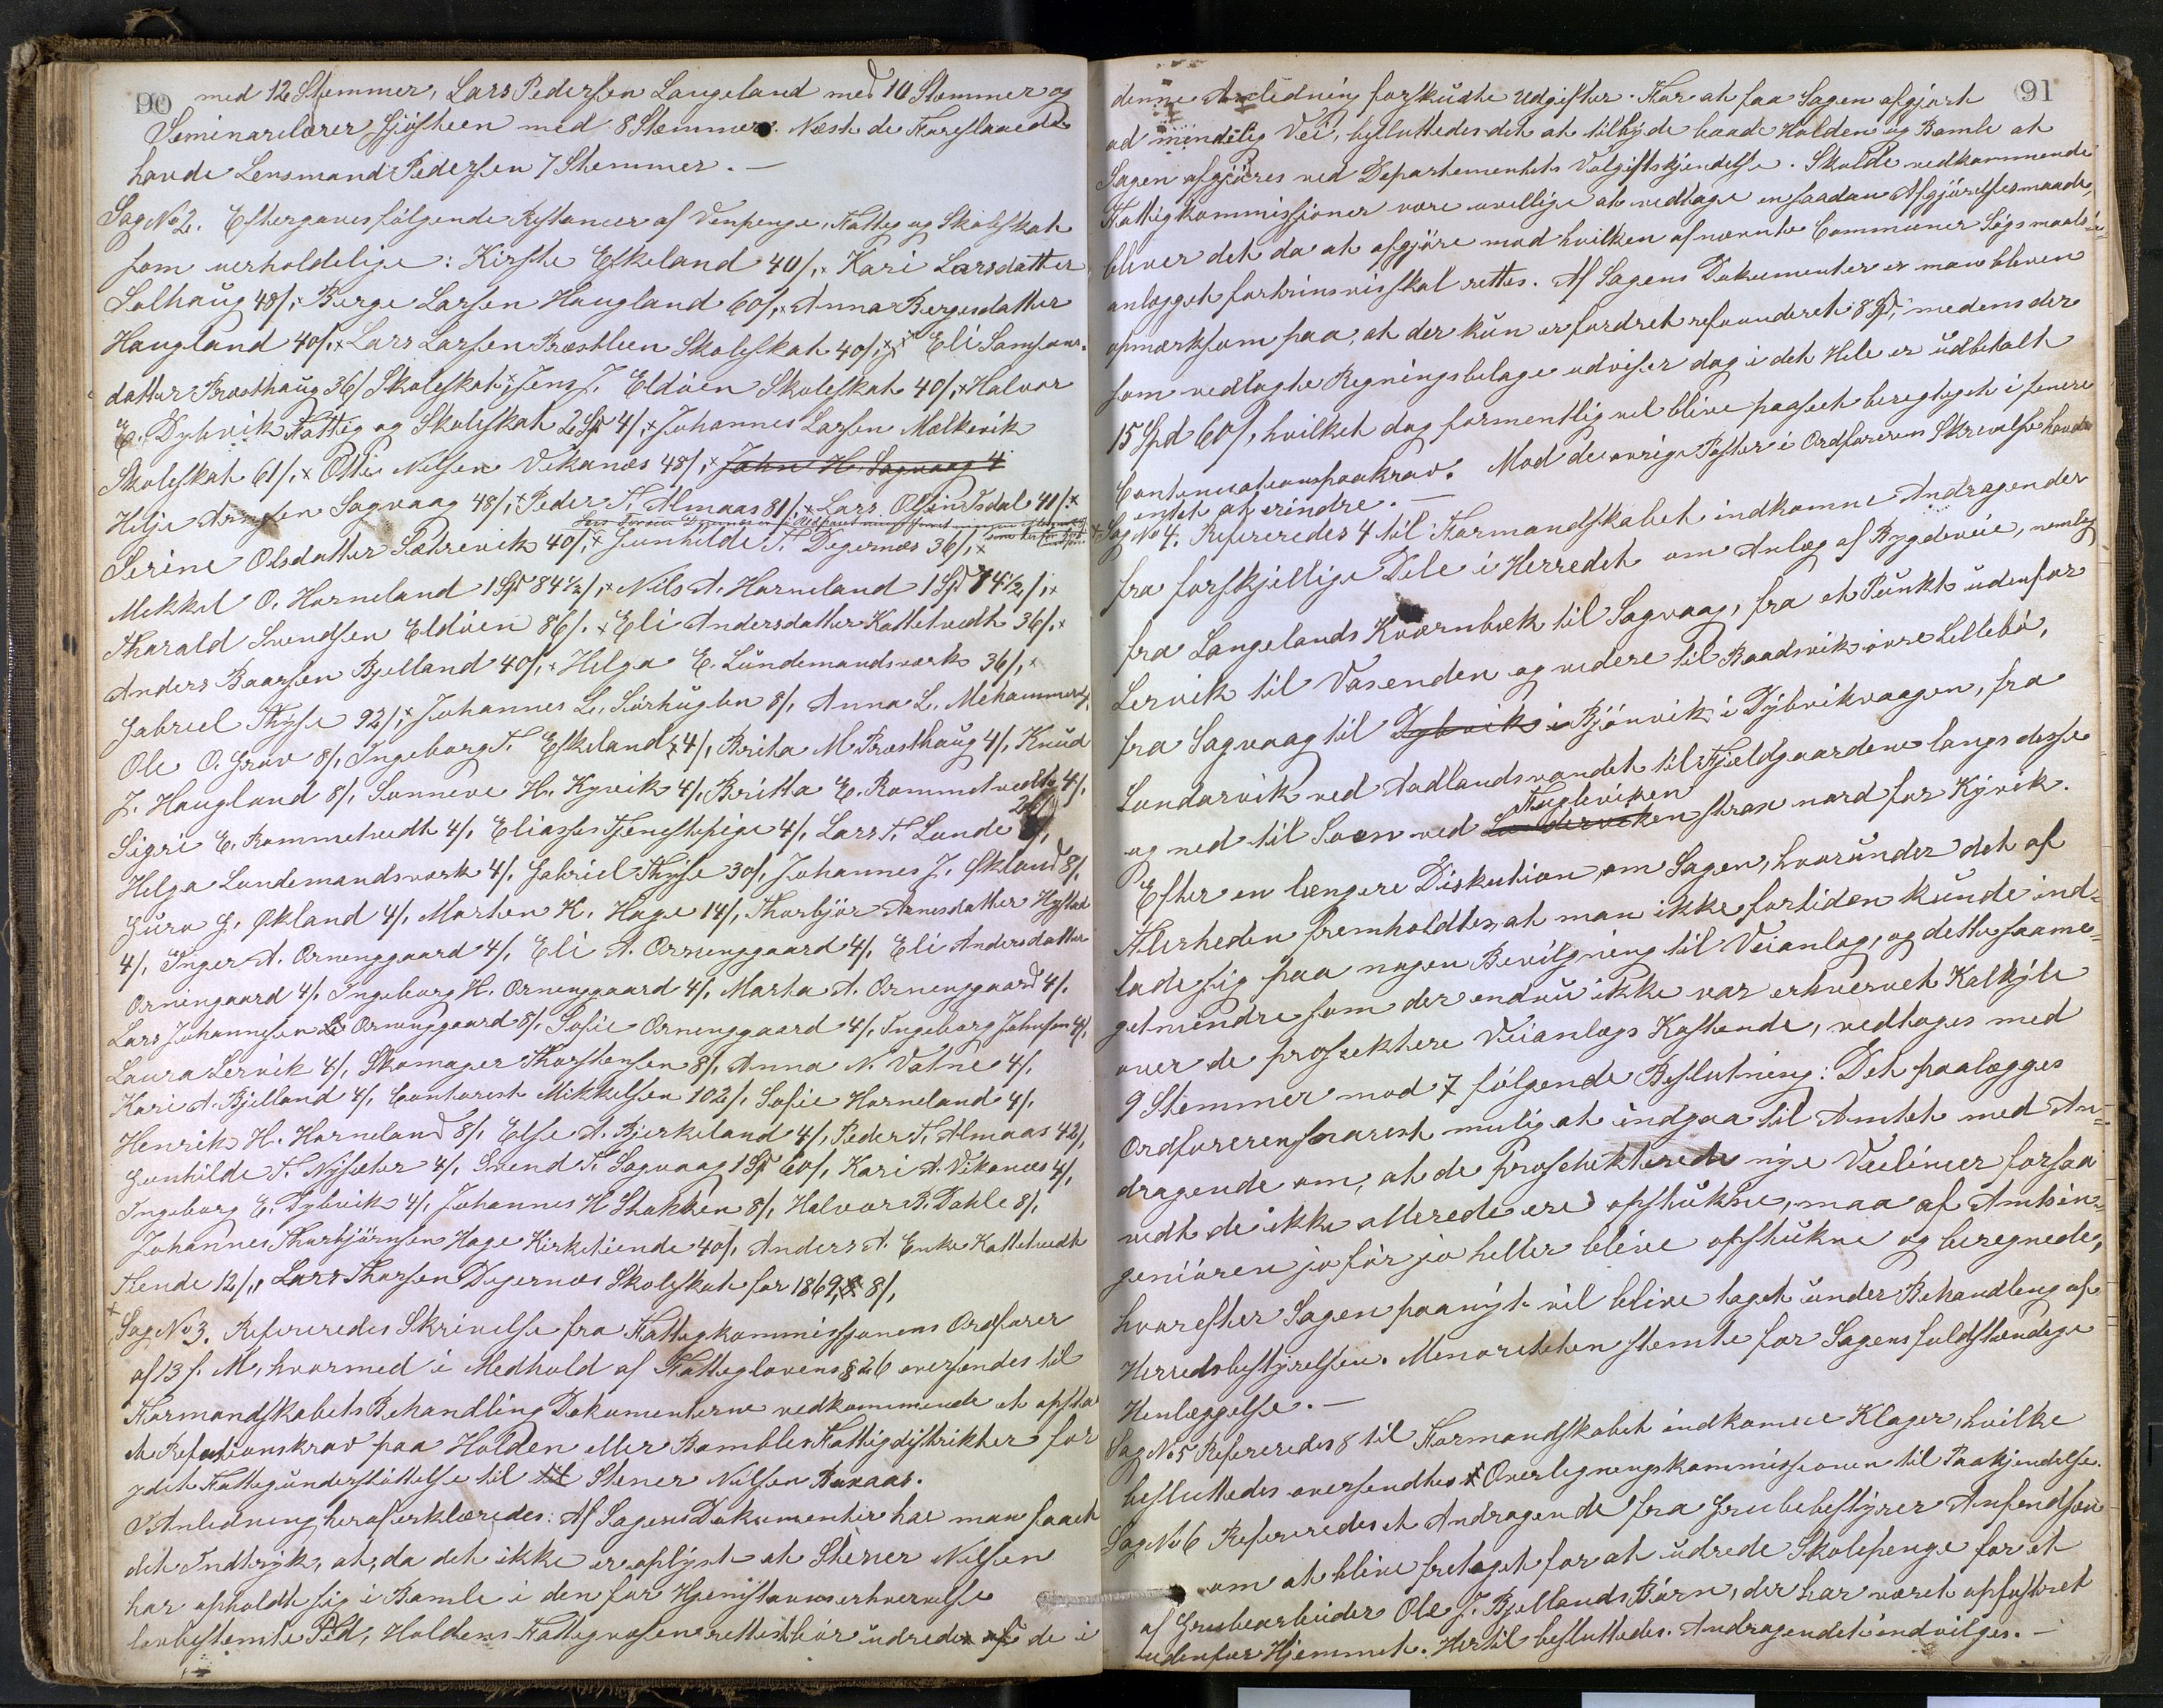 90
med 12 Stemmer, Lars Pedersen Langeland med 10 Stemmer og
Seminarelærer Gjösteen med 8 Stemmer. Næst de Foreslaaede
havde Lensmand Pedersen 7 Stemmer. —
Sag No 2. Eftergaves følgende Restancer af Veipenge, Fattig og Skoleskat
som uerholdelige: Kirsti Eskeland 40/, x Kari Larsdatter
Solhaug 48/, x Berge Larsen Haugland 60/, x Anna Bergesdatter
Haugland 40/, x Lars Larsen Præstlien Skoleskat 40/, x Eli Samsons-
datter Præsthaug 36/ Skoleskat, x Jens J. Eldöen Skoleskat 40/, x Halvor
E. Dybvik Fattig og Skoleskat 2 Spd 4/, x Johannes Larsen Mælkevik
Skoleskat 61/, x Otti Nilsen Vikanes 48/, x John H. Sagvaag 4
Helje Arnesen Sagvaag 48/, x Peder T. Almaas 81/, x Lars Olsen Dsdal 41/. x
Serine Olsdatter Sætrevik 40/, x Gunhilde T. Degernæs 36/, x
Mekkel O. Horneland 1 Spd 84 1/2/, x Nils A. Horneland 1 Spd 74 1/2/, x
Tharald Svendsen Eldöen 86/. x Eli Andersdatter Kattetvedt 36/. x
Anders Baarsen Bjelland 40/, x Helga E. Lundemandsværk 36/, x
Gabriel Thyse 92/, x Johannes L. Sörhuglen 8/, Anna L. Mehammer 4/,
Ole O. Grov 8/, Ingeborg T. Eskeland 4/, Brita M Præsthaug 4/, Knud
J. Haugland 8/, Sunneve H. Kyvik 4/, Britta E. Rommetvedt 4/,
Sigri E. Rommetvedt 4/, Eliassens Tjenestepige 4/, Lars T. Lunde
Helga Lundemandsværk 4/, Gabriel Thyse 30/, Johannes J. Økland 8/,
Guro J. Økland 4/, Marten K. Hage 14/, Thorbjör Arnesdatter Hystad
4/, Inger A. Orninggaard 4/, Eli A. Orninggaard 4/, Eli Andersdatter
Orningaard 4/, Ingeborg H. Orninggaard 4/, Marta A. Orninggaard 4/,
Lars Johannesen Orninggaard 8/, Sofie Orninggaard 4/, Ingeborg Johnsen 4/,
Laura Lervik 4/, Skomager Thorstensen 8/, Anna N. Vatne 4/,
Kari A. Bjelland 4/, Contorist Mikkelsen 102/, Sofie Horneland 4/,
Henrik H. Horneland 8/, Else A. Bjerkeland 4/, Peder T. Almaas 42/,
Gunhilde T. Nysæter 4/, Svend T. Sagvaag 1 Spd 60/, Kari A. Vikanæs 4/,
Ingeborg E. Dybvik 4/, Johannes H Stokken 8/, Halvor B. Dahle 8/,
Johannes Thorbjörnsen Hage Kirketiende 40/, Anders A. Enke Kattetvedt
Tiende 12/, Lars Thorsen Degernæs Skoleskat for 1869, 8/,
x Sag No 3. Refereredes Skrivelse fra Fattigkommissjonens Ordfører
af 13 f. M, hvormed i Medhold af Fattiglovens § 26 oversendes til
Formandskabets Behandling Dokumenterne vedkommende et opstaa
et Refusionskrav paa Holden eller Bambles Fattigdistrikter for
ydet Fattigunderstöttelse til til Stener Nilsen Buxaas.
I Anledning heraf erklæredes: Af Sagens Dokumenter har man faaet
det Indtryk, at, da det ikke er oplyst at Stener Nilsen
har opholdt sig i Bamle i den for Hjemstavnserhvervelse
lovbestemte Tid, Holdens Fattigvæsen rettest bör udrede de i
91
denne Anledning forskudte Udgifter. For at faa Sagen afgjort
ad mindelig Vei, besluttedes det at tilbyde baade Holden og Bamle at
Sagen afgjöres ved Departementets Voldgiftskjendelse. Skulde vedkommende
Fattigkommissjoner være uvillige at vedtage en saadan Afgjörelsesmaade,
bliver det da at afgjöre mod hvilken af nævnte Communer Sögsmaals-
anlægget fortrinsvis skal rettes. Af Sagens Dokumenter er man bleven
opmærksom paa, at der kun er fordret refunderet 8 Spd, medens der
som vedlagte Regningsbelage udviser dog i det Hele er udbetalt
15 Spd 60/, hvilket dog formentlig vil blive paaseet beregtiget i senere
Continuationspaakrav. Mod de övrige Poster i Ordförerens Skrivelse havde
intet at erindre. —
x Sag No 4. Refereredes 4 til Formandskabet indkomne Andragender
fra forskjellige Dele i Herredet om Anlæg af Bygdeveie, nemlig
fra Langelands Kværnbæk til Sagvaag, fra et Punkt udenfor
Lervik til Vasenden og videre til Baadsvik övre Lillebö,
fra Sagvaag til Dybvik i Bjönvik i Dybvikvaagen, fra
Sandarvik ved Aadlandsvandet til Fjeldgaardene langs desse
og ned til Soen ved Fugleviken strax nord for Kyvik.
Efter en længere Diskution om Sagen, hvorunder det af
Flerheden fremholdtes, at man ikke fortiden kunde ind-
lade sig paa nogen Bevilgning til Veianlæg, og dette saame-
get mindre som der endnu ikke var erhvervet Kalkyle
over de prosektere Veianlægs Kostende, vedtoges med
9 Stemmer mod 7 fölgende Beslutning: Det paalægges
Ordföreren snarest mulig at indgaa til Amtet med An-
dragende om, at de proschekterede nye Veilinier forsaa-
vidt de ikke allerede ere opstukne, maa af Amtsin-
geniören jo för jo heller blive opstukne og beregnede,
hvorefter Sagen paanyt vil blive taget under Behandling af
Herredsbestyrelsen. Minoriteten stemte for Sagens fuldstændige
Henlæggelse. —
Sag No 5 Refereredes 8 til Formandskabet indkomne Klager, hvilke
besluttedes oversendtes Overligningskommissionen til Paakjendelse.
Sag No 6 Refereredes et Andragende fra Grubebestyrer Anfindsen
om at blive fritaget for at udrede Skolepenge for et
af Grubearbeider Ole J. Bjellands Börn, der har været opfostret
udenfor Hjemmet. Hertil besluttedes. Andragendet indvilges. —